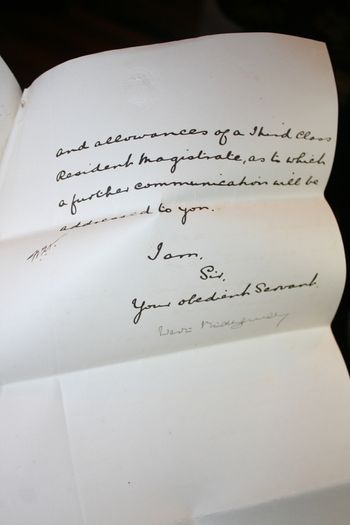 and allowances of a Third Class
Resident Magistrate, as to which
a further communication will be
addressed to you.
I am,
Sir,
Your obedient Servant